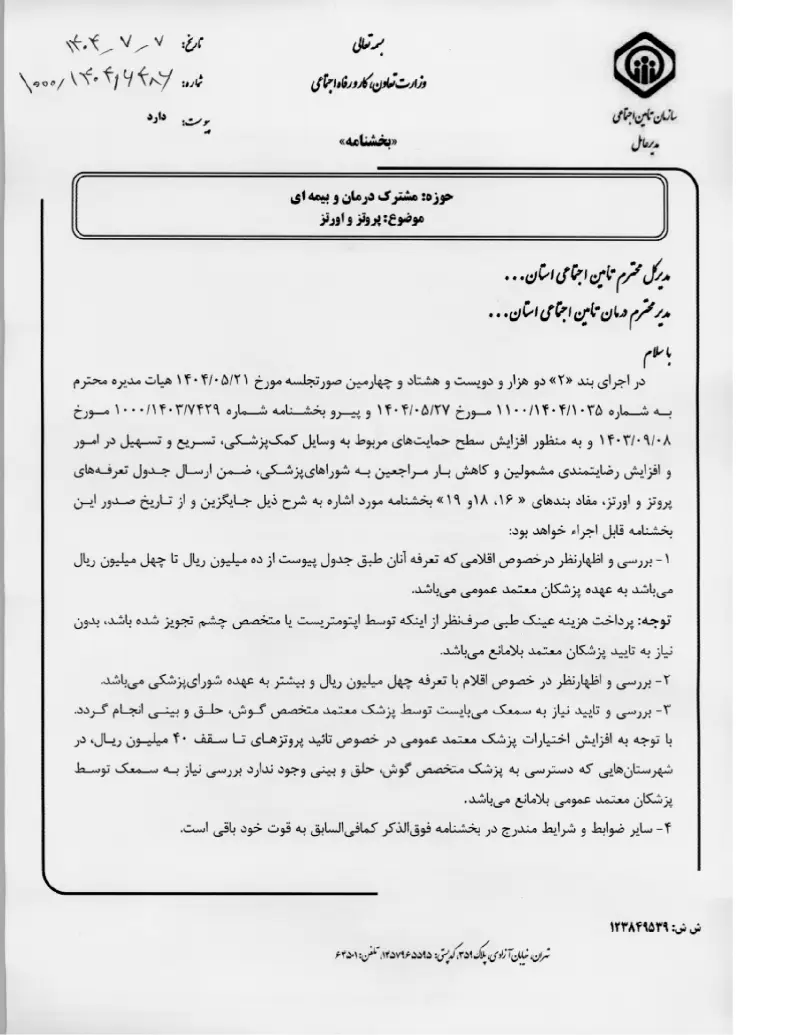 بسمه تعالی
وزارت تعاون، کار و رفاه اجتماعی
«بخشنامه»
سازمان تأمین اجتماعی
مدیرعامل
تاریخ: ۱۴۰۴/۷/۷
شماره: ۱۰۰۰/۱۴۰۴/۶۴۸۶
پیوست: دارد
حوزه: مشترک درمان و بیمه ای
موضوع: پروتز و اورتز
مدیرکل محترم تأمین اجتماعی استان...
مدیر محترم درمان تأمین اجتماعی استان...
با سلام
در اجرای بند «۲» دو هزار و دویست و هشتاد و چهارمین صورتجلسه مورخ ۱۴۰۴/۰۵/۲۱ هیات مدیره محترم
به شماره ۱۱۰۰/۱۴۰۴/۱۰۳۵ مورخ ۱۴۰۴/۰۵/۲۷ و پیرو بخشنامه شماره ۱۰۰۰/۱۴۰۳/۷۴۲۹ مورخ
۱۴۰۳/۰۹/۰۸ و به منظور افزایش سطح حمایت‌های مربوط به وسایل کمک‌پزشکی، تسریع و تسهیل در امور
و افزایش رضایتمندی مشمولین و کاهش بار مراجعین به شوراهای‌پزشکی، ضمن ارسال جدول تعرفه‌های
پروتز و اورتز، مفاد بندهای « ۱۶، ۱۸و ۱۹» بخشنامه مورد اشاره به شرح ذیل جایگزین و از تاریخ صدور این
بخشنامه قابل اجراء خواهد بود:
۱- بررسی و اظهارنظر درخصوص اقلامی که تعرفه آنان طبق جدول پیوست از ده میلیون ریال تا چهل میلیون ریال
می‌باشد به عهده پزشکان معتمد عمومی می‌باشد.
توجه: پرداخت هزینه عینک طبی صرف‌نظر از اینکه توسط اپتومتریست یا متخصص چشم تجویز شده باشد، بدون
نیاز به تایید پزشکان معتمد بلامانع می‌باشد.
۲- بررسی و اظهارنظر در خصوص اقلام با تعرفه چهل میلیون ریال و بیشتر به عهده شورای‌پزشکی می‌باشد.
۳- بررسی و تایید نیاز به سمعک می‌بایست توسط پزشک معتمد متخصص گوش، حلق و بینی انجام گردد.
با توجه به افزایش اختیارات پزشک معتمد عمومی در خصوص تائید پروتزهای تا سقف ۴۰ میلیون ریال، در
شهرستان‌هایی که دسترسی به پزشک متخصص گوش، حلق و بینی وجود ندارد بررسی نیاز به سمعک توسط
پزشکان معتمد عمومی بلامانع می‌باشد.
۴- سایر ضوابط و شرایط مندرج در بخشنامه فوق‌الذکر کمافی‌السابق به قوت خود باقی است.
ش ش: ۱۲۳۸۴۹۵۳۹
تهران، خیابان آزادی، پلاک ۳۵۹، کدپستی: ۱۴۵۷۹۶۵۵۹۵، تلفن: ۶۴۵۰۱